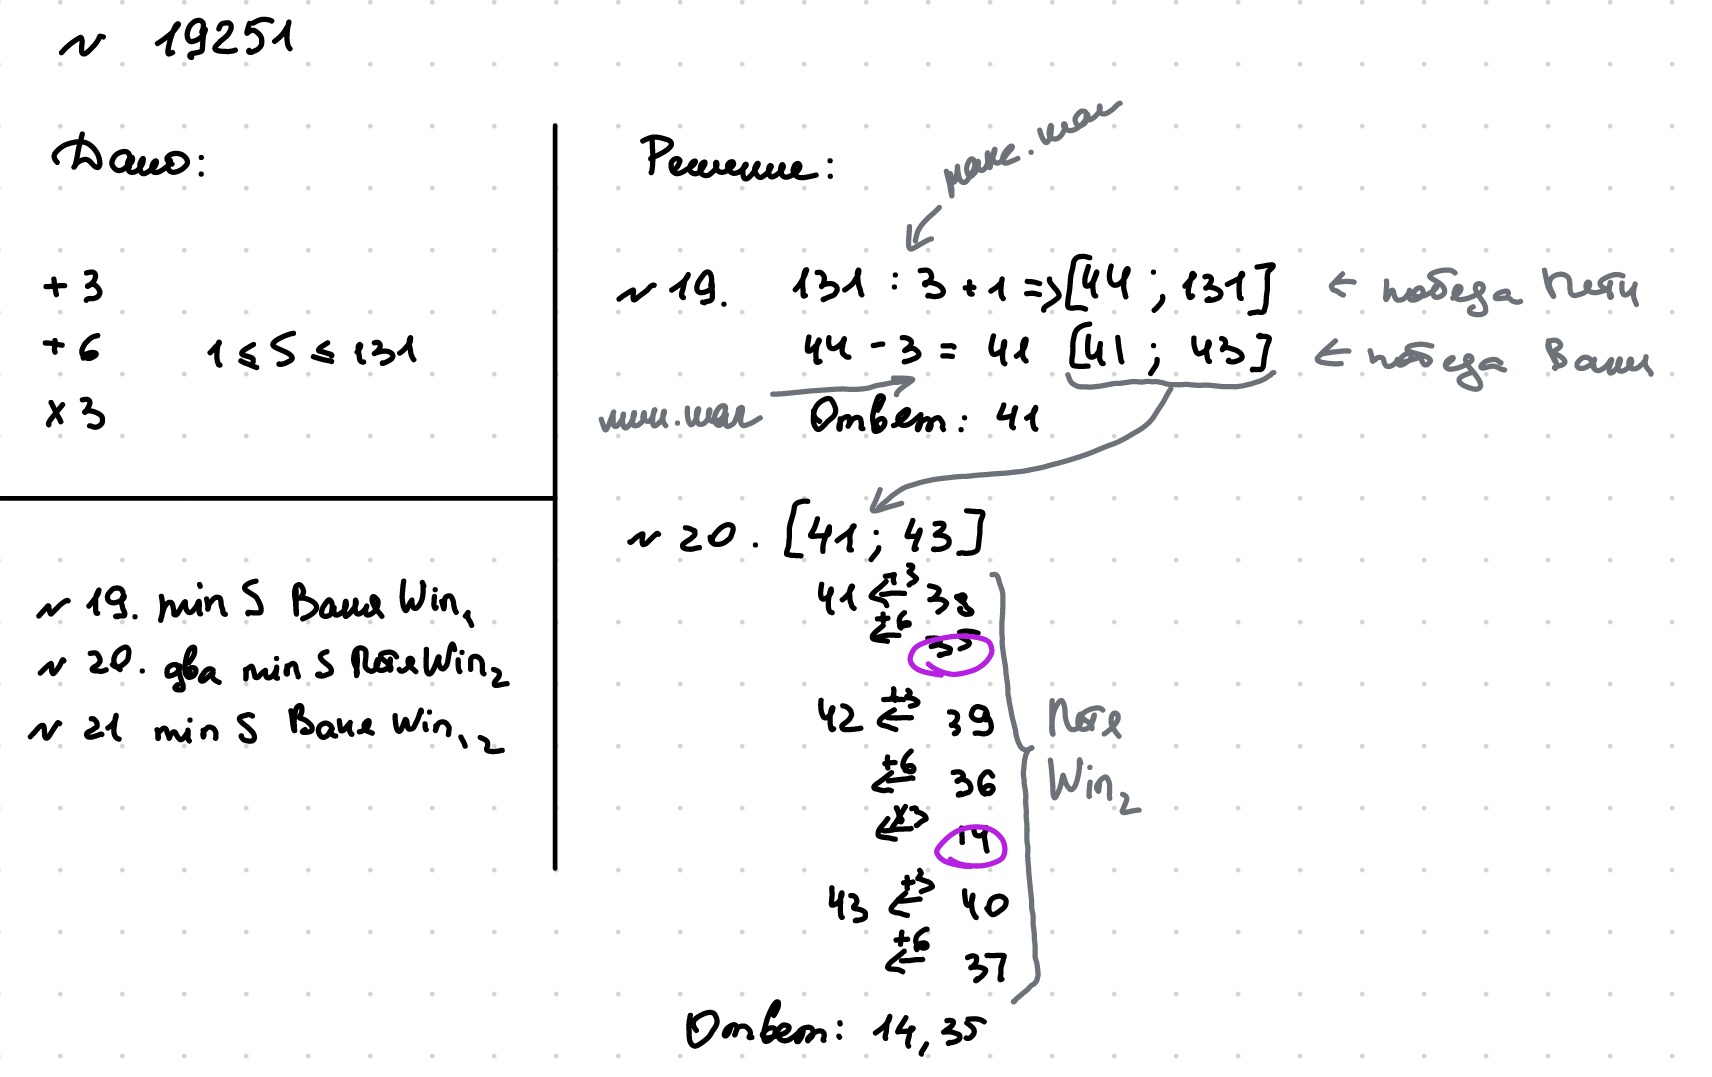 ~ 19251
Дано:
+ 3
+ 6
1 ≤ S ≤ 131
x 3
~ 19. min S Ваня Win₁
~ 20. два min S Петя Win₂
~ 21 min S Ваня Win₁,₂
Решение:
макс. шаг
~ 19. 131 : 3 + 1 => [44 ; 131] ← победа Пети
44 - 3 = 41 [41 ; 43] ← победа Вани
мин. шаг
Ответ: 41
~ 20. [41 ; 43]
41 +3 ← 38
+6 ← 35
42 +3 ← 39
+6 ← 36
x3 ← 14
43 +3 ← 40
+6 ← 37
Петя
Win₂
Ответ: 14, 35